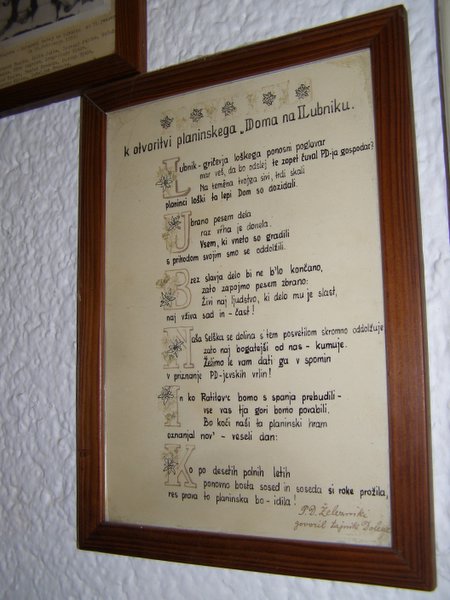 k otvoritvi planinskega „Doma na Lubniku.
Lubnik - gričevja loškega ponosni poglavar
mar veš, da bo odslej te zopet čuval PD-ja gospodar?
Na teména tvojga sivi, trdi skali
planinci loški ta lepi Dom so dozidali.
Ubrano pesem dela
raz vŕha je donela.
Vsem, ki vneto so gradili
s prihodom svojim smo se oddolžili.
Brez slavja delo bi ne b'lo končano,
zato zapojmo pesem zbrano:
Živi naj ljudstvo, ki delo mu je slast,
naj vživa sad in - čast!
Naša Selška se dolina s tem posvetilom skromno oddolžuje,
zato naj bogatejši od nas - kumuje.
Želimo le vam dati ga v spomin
v priznanje PD-jevskih vrlin!
In ko Ratitov'c bomo s spanja prebudili -
vse vas tja gori bomo povabili.
Bo koči naši ta planinski hram
oznanjal nov' - veseli dan:
Ko po desetih polnih letih
ponovno bosta sosed in soseda si roke prožila,
res prava to planinska bo - idila!
P.D. Železniki
govoril tajnik